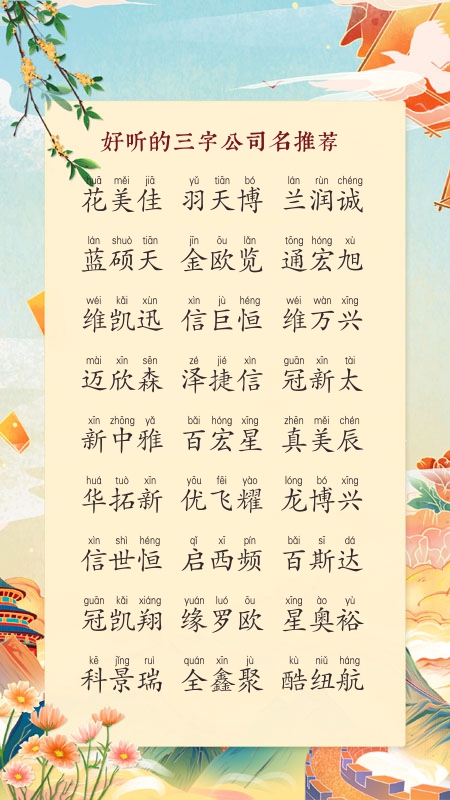 好听的三字公司名推荐
huā měi jiā yǔ tiān bó lán rùn chéng
花美佳 羽天博 兰润诚
lán shuò tiān jīn ōu lǎn tōng hóng xù
蓝硕天 金欧览 通宏旭
wéi kǎi xùn xìn jù héng wéi wàn xīng
维凯迅 信巨恒 维万兴
mài xīn sēn zé jié xìn guān xīn tài
迈欣森 泽捷信 冠新太
xīn zhōng yǎ bǎi hóng xīng zhēn měi chén
新中雅 百宏星 真美辰
huá tuò xīn yōu fēi yào lóng bó xīng
华拓新 优飞耀 龙博兴
xìn shì héng qǐ xī pín bǎi sī dá
信世恒 启西频 百斯达
guān kǎi xiáng yuán luó ōu xīng ào yù
冠凯翔 缘罗欧 星奥裕
kē jǐng ruì quán xīn jù kù niǔ háng
科景瑞 全鑫聚 酷纽航